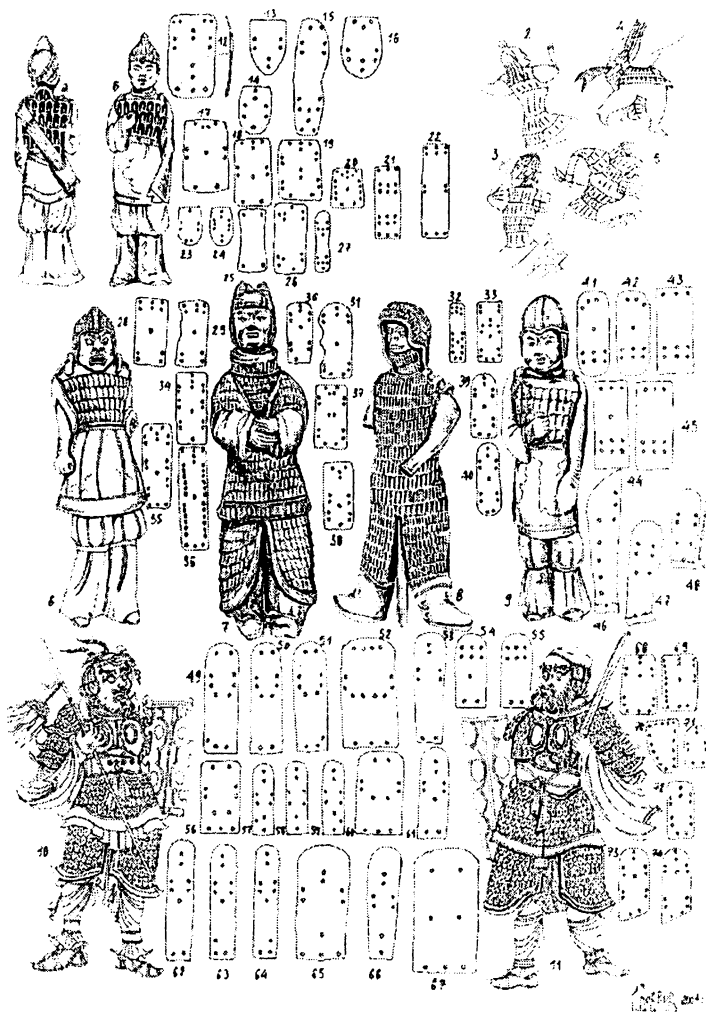 12 13 15 16
14
17 18 19 20 21 22
23 24 25 26 27
2 4
3 5
28 29 30 31 32 33 41 42 43
34 37 39 45
35 36 38 40 44
6 7 8 9 46 47 48
49 50 51 52 53 54 55 68 69
56 57 58 59 60 61 72
10 73
62 63 64 65 66 67 11